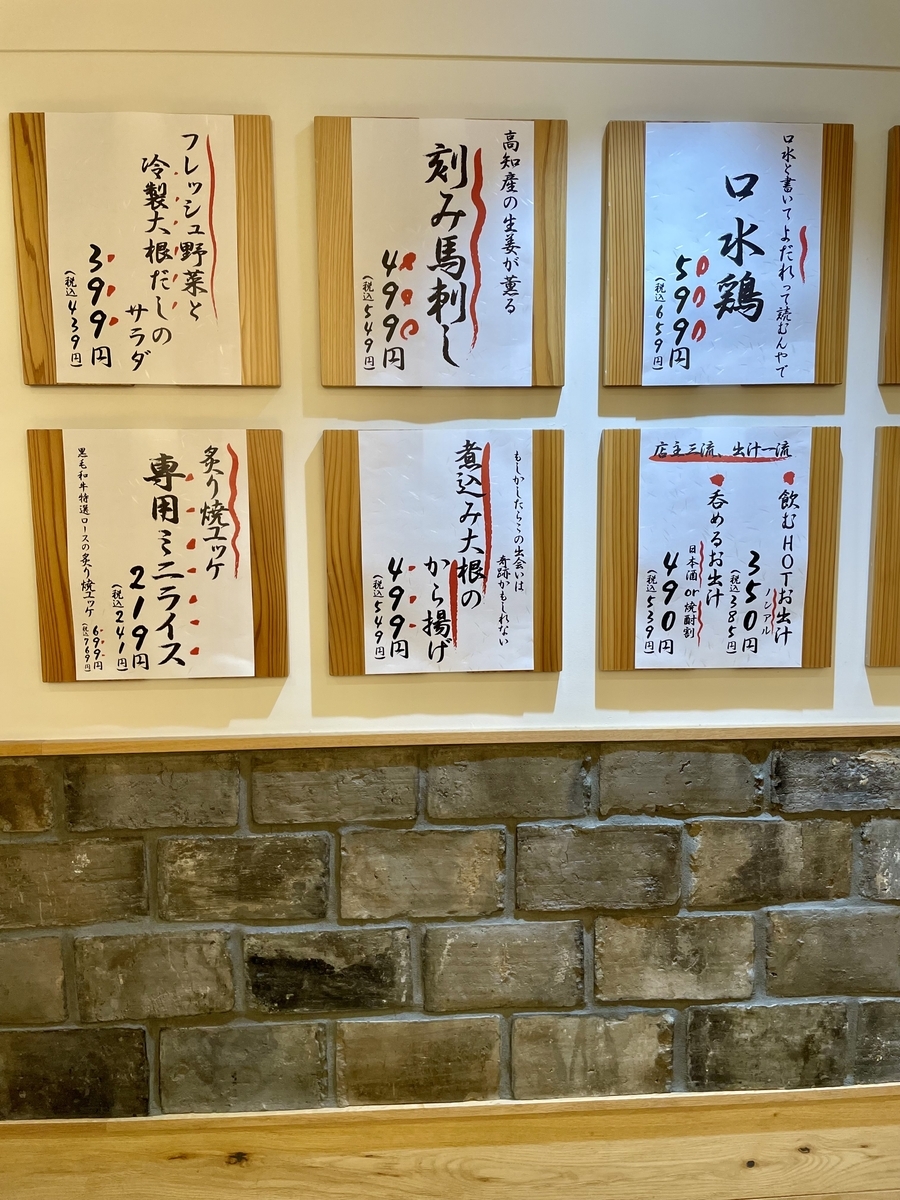 口水と書いてよだれって読むんやで
口水鶏
599円
(税込659円)
高知産の生姜が薫る
刻み馬刺し
499円
(税込549円)
フレッシュ野菜と
冷製大根だしの
サラダ
399円
(税込439円)
店主三流、出汁一流
飲むHOTお出汁
ノンアル
350円
(税込385円)
呑めるお出汁
日本酒or焼酎割
490円
(税込539円)
もしかしたらこの出会いは
奇跡かもしれない
煮込み大根の
から揚げ
499円
(税込549円)
炙り焼ユッケ
専用ミニライス
219円
(税込241円)
黒毛和牛特選ロースの炙り焼ユッケ
699円
(税込769円)